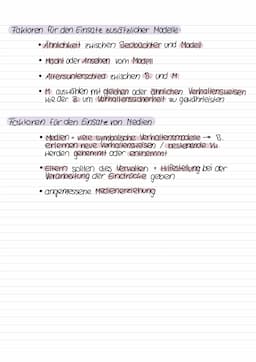 Faktoren für den Einsatz zusätzlicher Modelle
• Ähnlichkeit zwischen Beobachter und Modell
• Macht oder Ansehen vom Modell
• Altersunterschied zwischen B. und M.
• M. auswählen mit gleichen oder ähnlichen Verhaltensweisen
wie der B. um Verhaltenssicherheit zu gewährleisten
Faktoren für den Einsatz von Medien:
• Medien = viele symbolische Verhaltensmodelle → B.
erlernen neue Verhaltensweisen / bestehende VW
werden gehemmt oder enthemmt
• Eltern sollen dies verwalten + Hilfestellung bei der
Verarbeitung der Eindrücke geben
• angemessene Medienerziehung